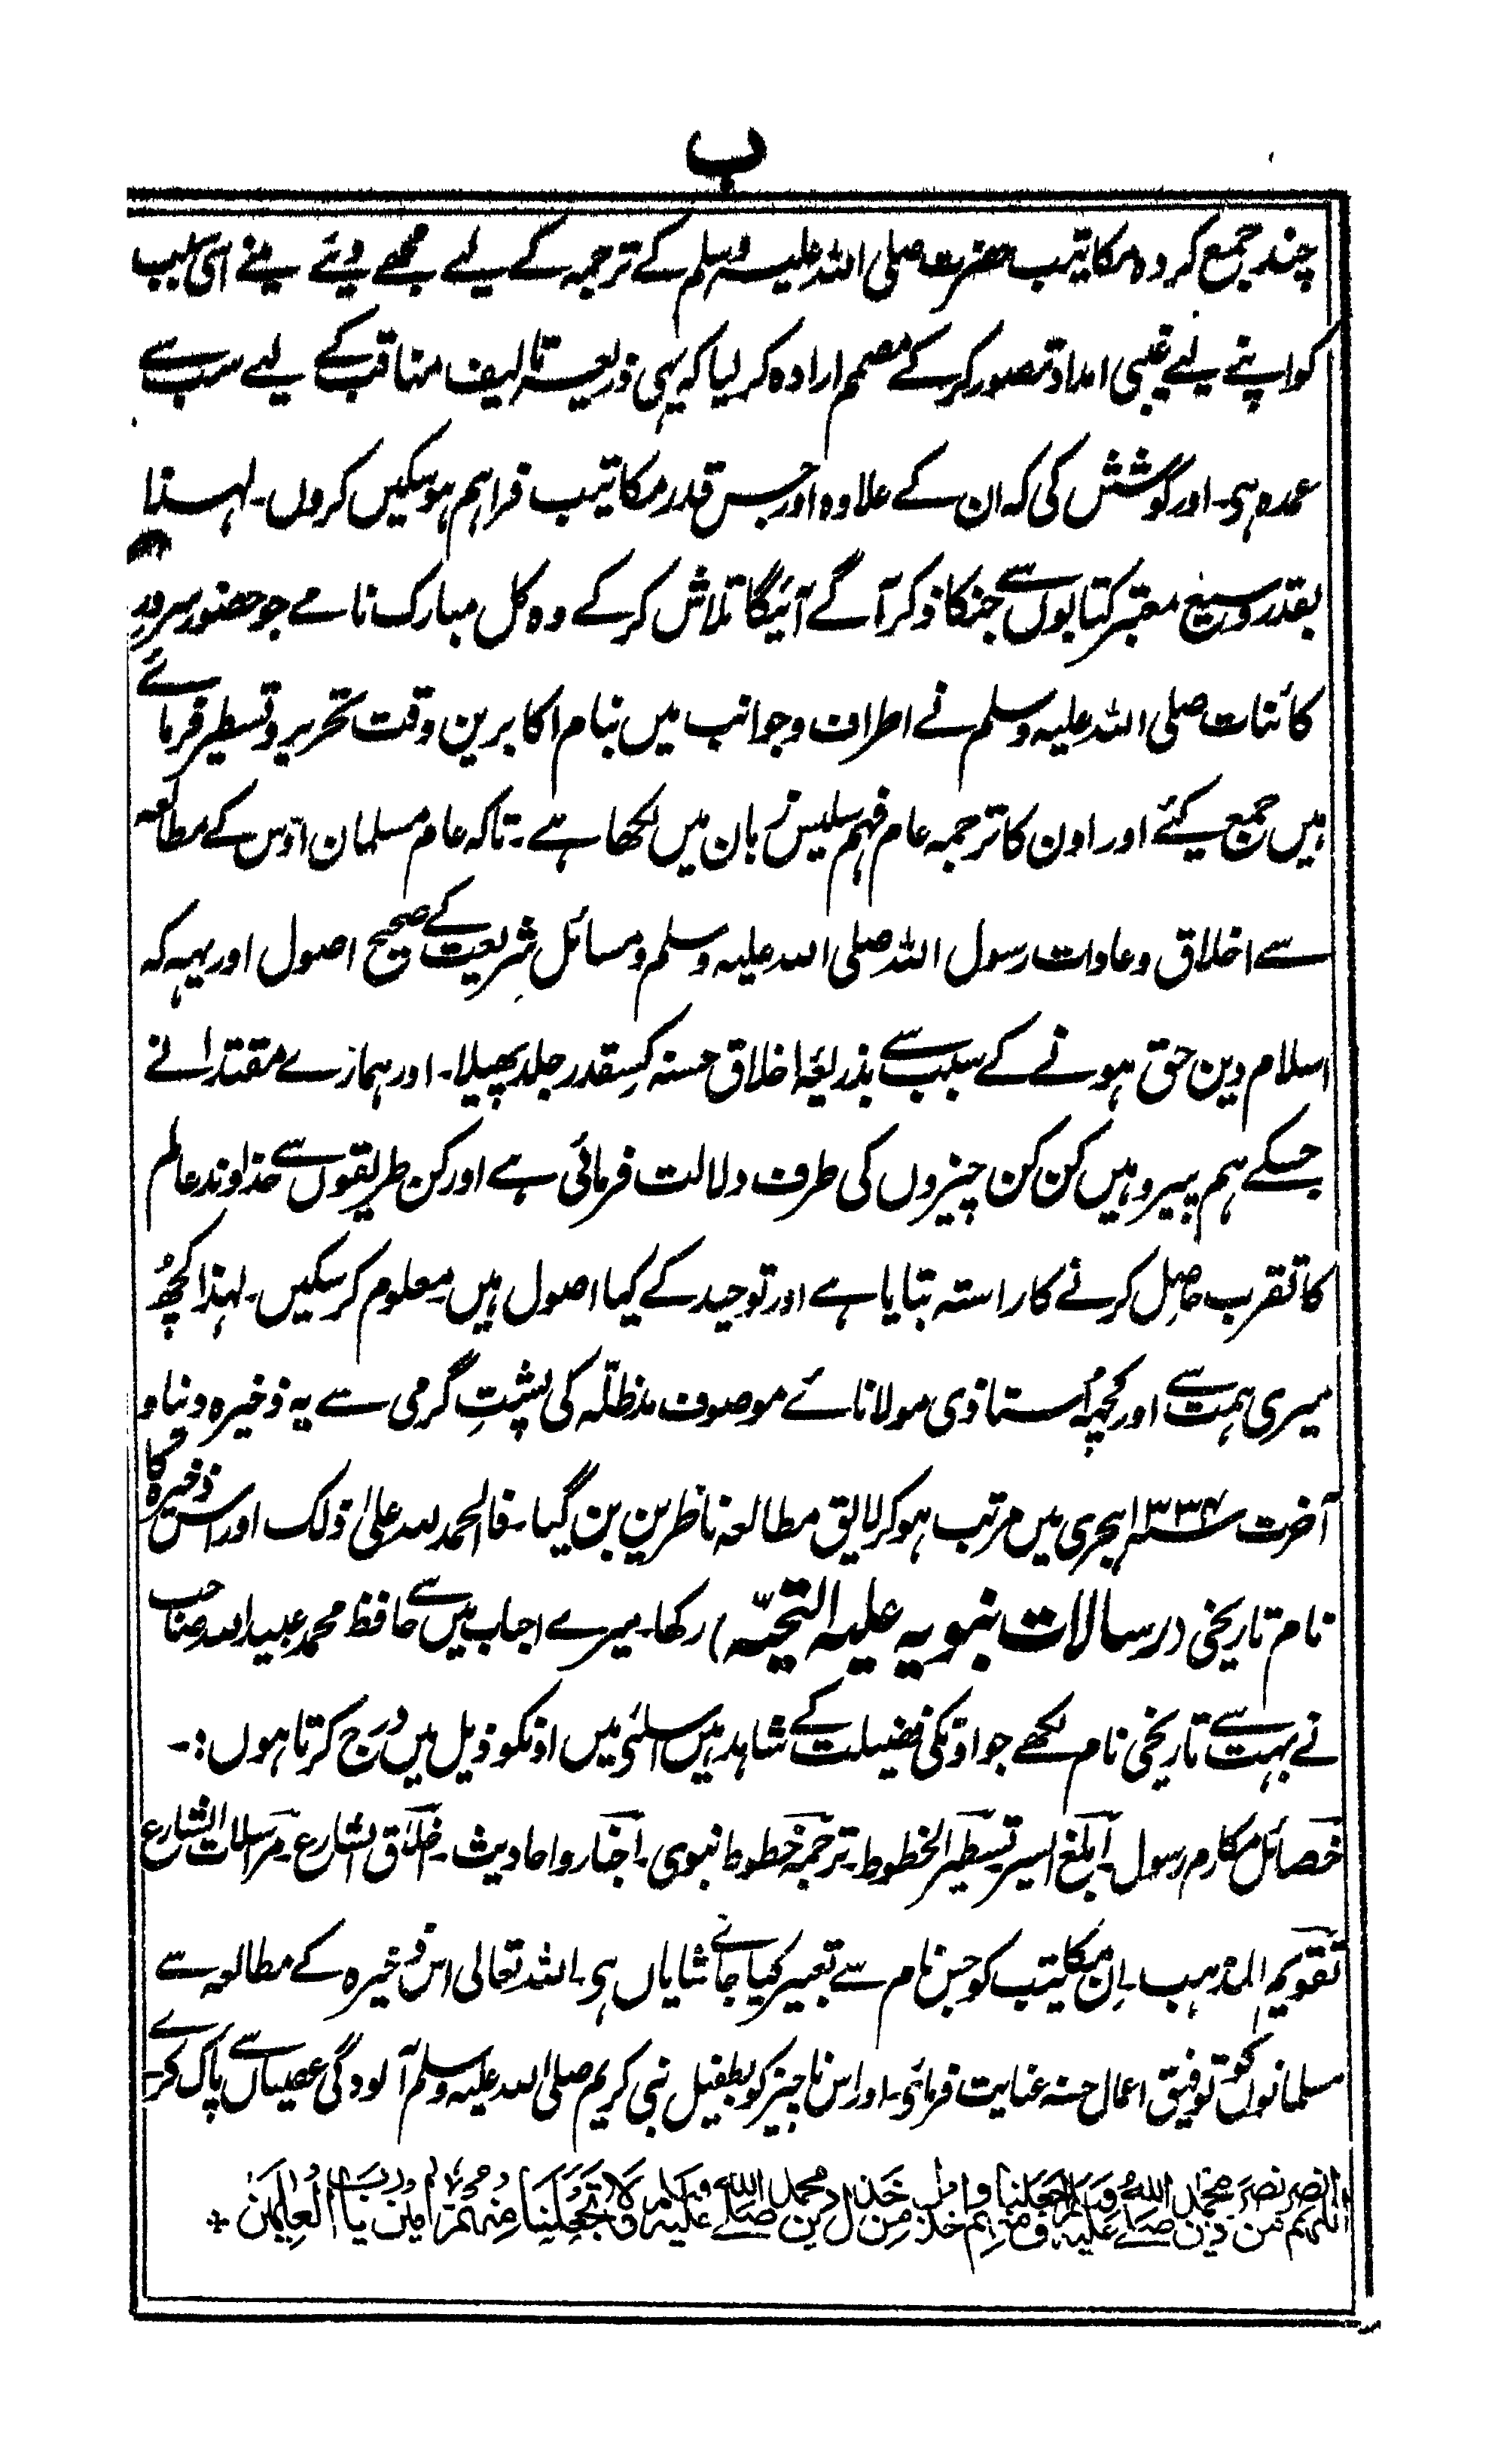 ب
چند جمع کردہ مکاتیب حضرت صلی اللہ علیہ وسلم کے ترجمہ کے لیے مجھے دیئے مینے اسی سبب
کو اپنے لیے غیبی امداد تصور کر کے مصمم ارادہ کر لیا کہ یہی ذریعہ تالیف مناقب کے لیے سب سے
عمدہ ہی۔ اور کوشش کی کہ ان کے علاوہ اور جس قدر مکاتیب فراہم ہو سکیں کروں۔ لہذا
بقدر وسیع معتبر کتابوں سے جنکا ذکر آگے آئیگا تلاش کر کے وہ کل مبارک نامے جو حضور سرور
کائنات صلی اللہ علیہ وسلم نے اطراف و جوانب میں بنام اکابرین وقت تحریر و تسطیر فرمائے
ہیں جمع کیئے اور اون کا ترجمہ عام فہم سلیس زبان میں لکھا ہے۔ تاکہ عام مسلمان اوس کے مطالعہ
سے اخلاق و عادات رسول اللہ صلی اللہ علیہ وسلم و مسائل شریعت کے صحیح اصول اور یہہ کہ
اسلام دین حق ہونے کے سبب سے بذریعۂ اخلاق حسنہ کسقدر جلد پھیلا۔ اور ہمارے مقتدا نے
جسکے ہم پیرو ہیں کن کن چیزوں کی طرف دلالت فرمائی ہے اور کن طریقوں سے خداوند عالم
کا تقرب حاصل کرنے کا راستہ بتایا ہے اور توحید کے کیا اصول ہیں معلوم کر سکیں۔ لہذا کچھ
میری ہمت سے اور کچھہ اُستاذی مولانائے موصوف مدظلّہ کی پشتِ گرمی سے یہ ذخیرہ دنیا و
آخرت ۱۳۳۷ سنہ ہجری میں مرتب ہو کر لائق مطالعہ ناظرین بن گیا۔ فالحمد للہ علیٰ ذلک اور اس ذخیرہ کا
نام تاریخی (رسالات نبویہ علیہ التحیّہ) رکھا۔ میرے احباب میں سے حافظ محمد عبید اللہ صاحب
نے بہت سے تاریخی نام لکھے جو اونکی فضیلت کے شاہد ہیں اسلئی میں اونکو ذیل میں درج کرتا ہوں :۔
خصائل مکارم رسول۔ ابلغ السیر۔ تسطیر الخطوط۔ ترجمہ خطوط نبوی۔ اخبار و احادیث۔ اخلاق الشارع۔ مراسلات الشارع
تقویم المذہب۔ اِن مکاتیب کو جس نام سے تعبیر کیا جائے شایاں ہی۔ اللہ تعالی اس ذخیرہ کے مطالعہ سے
مسلمانوں کو توفیق اعمال حسنہ عنایت فرمائی۔ اور اس ناچیز کو بطفیل نبی کریم صلی اللہ علیہ وسلم آلودگی عصیاں سے پاک کرے
اللہم انصر من نصر دین محمد صلی اللہ علیہ وسلم واجعلنا منہم واخذل من خذل دین محمد صلی اللہ علیہ وسلم ولا تجعلنا منہم امین یا رب العلمین *